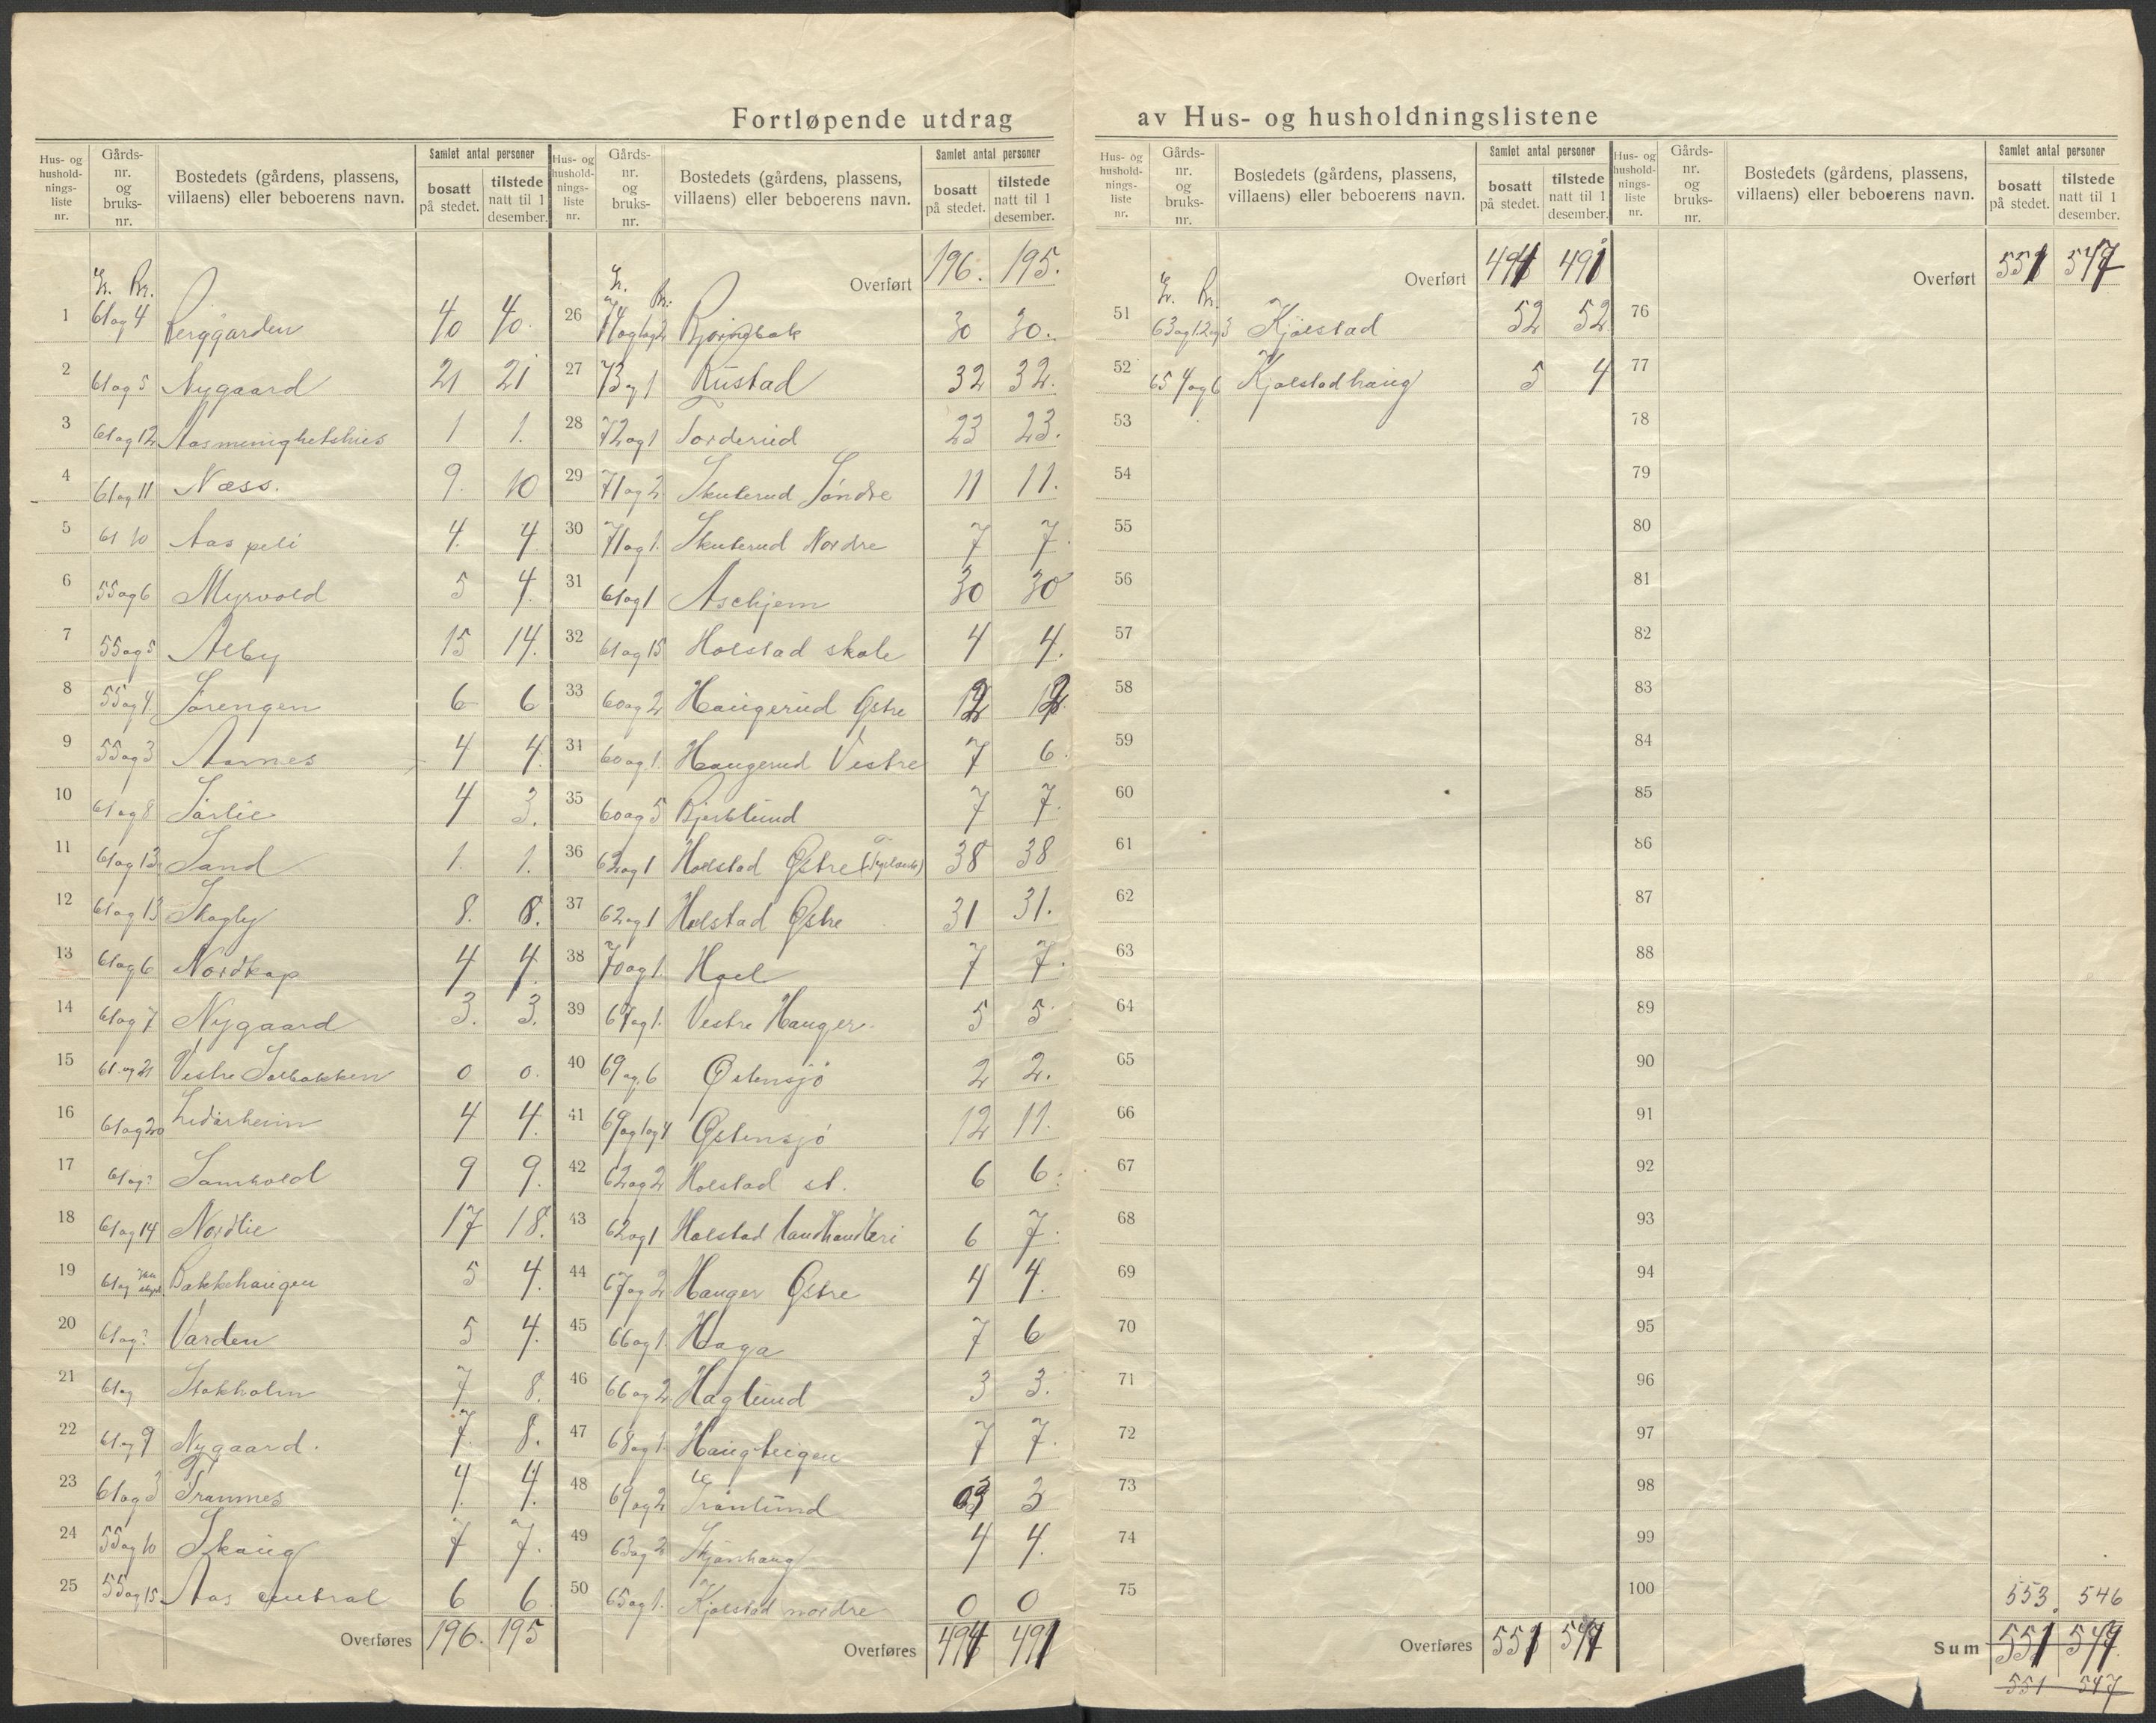 Fortløpende utdrag av Hus- og husholdningslistene
Hus- og husholdnings-liste nr. Gårds-nr. og bruks-nr. Bostedets (gårdens, plassens, villaens) eller beboerens navn. Samlet antal personer bosatt på stedet. tilstede natt til 1 desember.
Gr. Br.
1 61 og 4 Berggården 40 40.
2 61 og 5 Nygaard 21 21
3 61 og 12 Aasmenighetshus 1 1.
4 61 og 11 Næss. 9. 10
5 61 10 Aas peli 4. 4
6 55 og 6 Myrvold 5 4.
7 55 og 5 Alby 15 14.
8 55 og 4. Sørengen 6 6
9 55 og 3 Aarnes 4 4.
10 61 og 8 Sørlie 4 3.
11 61 og 13 Sand 1. 1.
12 61 og 13 Skogly 8. 8.
13 61 og 6 Nordkap 4 4.
14 61 og 7 Nygaard 3. 3.
15 61. og 21 Vestre Solbakken 0 0.
16 61 og 20 4 4.
17 61 og ? Samhold 9 9.
18 61 og 14 Nordlie 17 18.
19 61 og Bakkehaugen 5 4.
20 61 og ? Varden 5 4.
21 61 og Stokholm 7 8.
22 61 og 9 Nygaard. 7. 8.
23 61 og 3 Trannes 4. 4.
24 55 og 10 Skaug 7 7.
25 55 og 15 Aas central 6 6
Overføres 196. 195
Hus- og husholdnings-liste nr. Gårds-nr. og bruks-nr. Bostedets (gårdens, plassens, villaens) eller beboerens navn. Samlet antal personer bosatt på stedet. tilstede natt til 1 desember.
Overført 196. 195.
26 30 30.
27 73 og 1 Rustad 32 32.
28 72 og 1 Torderud 23 23.
29 71 og 2 Skuterud Søndre 11 11.
30 71 og 1. Skuterud Nordre 7 7.
31 61 og 1 Aschjem 30 30
32 61 og 15 Holstad skole 4 4.
33 60 og 2 Haugerud Østre 12 12
34 60 og 1. Haugerud Vestre 7 6.
35 60 og 5 Bjerklund 7 7.
36 62 og 1 Holstad Østre 38 38
37 62 og 1 Holstad Østre 31 31.
38 70 og 1. Hoel 7 7.
39 67 og 1. Vestre Hauger. 5 5
40 69 og 6 Østensjø 2 2.
41 69 og 1 og 4 Østensjø 12 11.
42 62 og 2 Holstad st. 6 6.
43 62 og 1 Holstad landhandleri 6 7.
44 67 og 2 Hauger Østre 4 4.
45 66 og 1. Haga 7 6
46 66 og 2 Haglund 3 3.
47 68 og 1. Haugteigen 7 7.
48 69 og 2 Grønlund 3 3
49 63 og 2 Skjønhaug 4 4.
50 65 og 1. Kjølstad nordre 0 0
Overføres 494 491
Hus- og husholdnings-liste nr. Gårds-nr. og bruks-nr. Bostedets (gårdens, plassens, villaens) eller beboerens navn. Samlet antal personer bosatt på stedet. tilstede natt til 1 desember.
Overført 494 491
Gr. Br.
51 63 og 1 2 og 3 Kjølstad 52 52
52 65 4 og 6 Kjølstadhaug 5 4
53
54
55
56
57
58
59
60
61
62
63
64
65
66
67
68
69
70
71
72
73
74
75
Overføres 551 547
Hus- og husholdnings-liste nr. Gårds-nr. og bruks-nr. Bostedets (gårdens, plassens, villaens) eller beboerens navn. Samlet antal personer bosatt på stedet. tilstede natt til 1 desember.
Overført 551 547
76
77
78
79
80
81
82
83
84
85
86
87
88
89
90
91
92
93
94
95
96
97
98
99
100
553. 546
Sum 551 547.
551 547